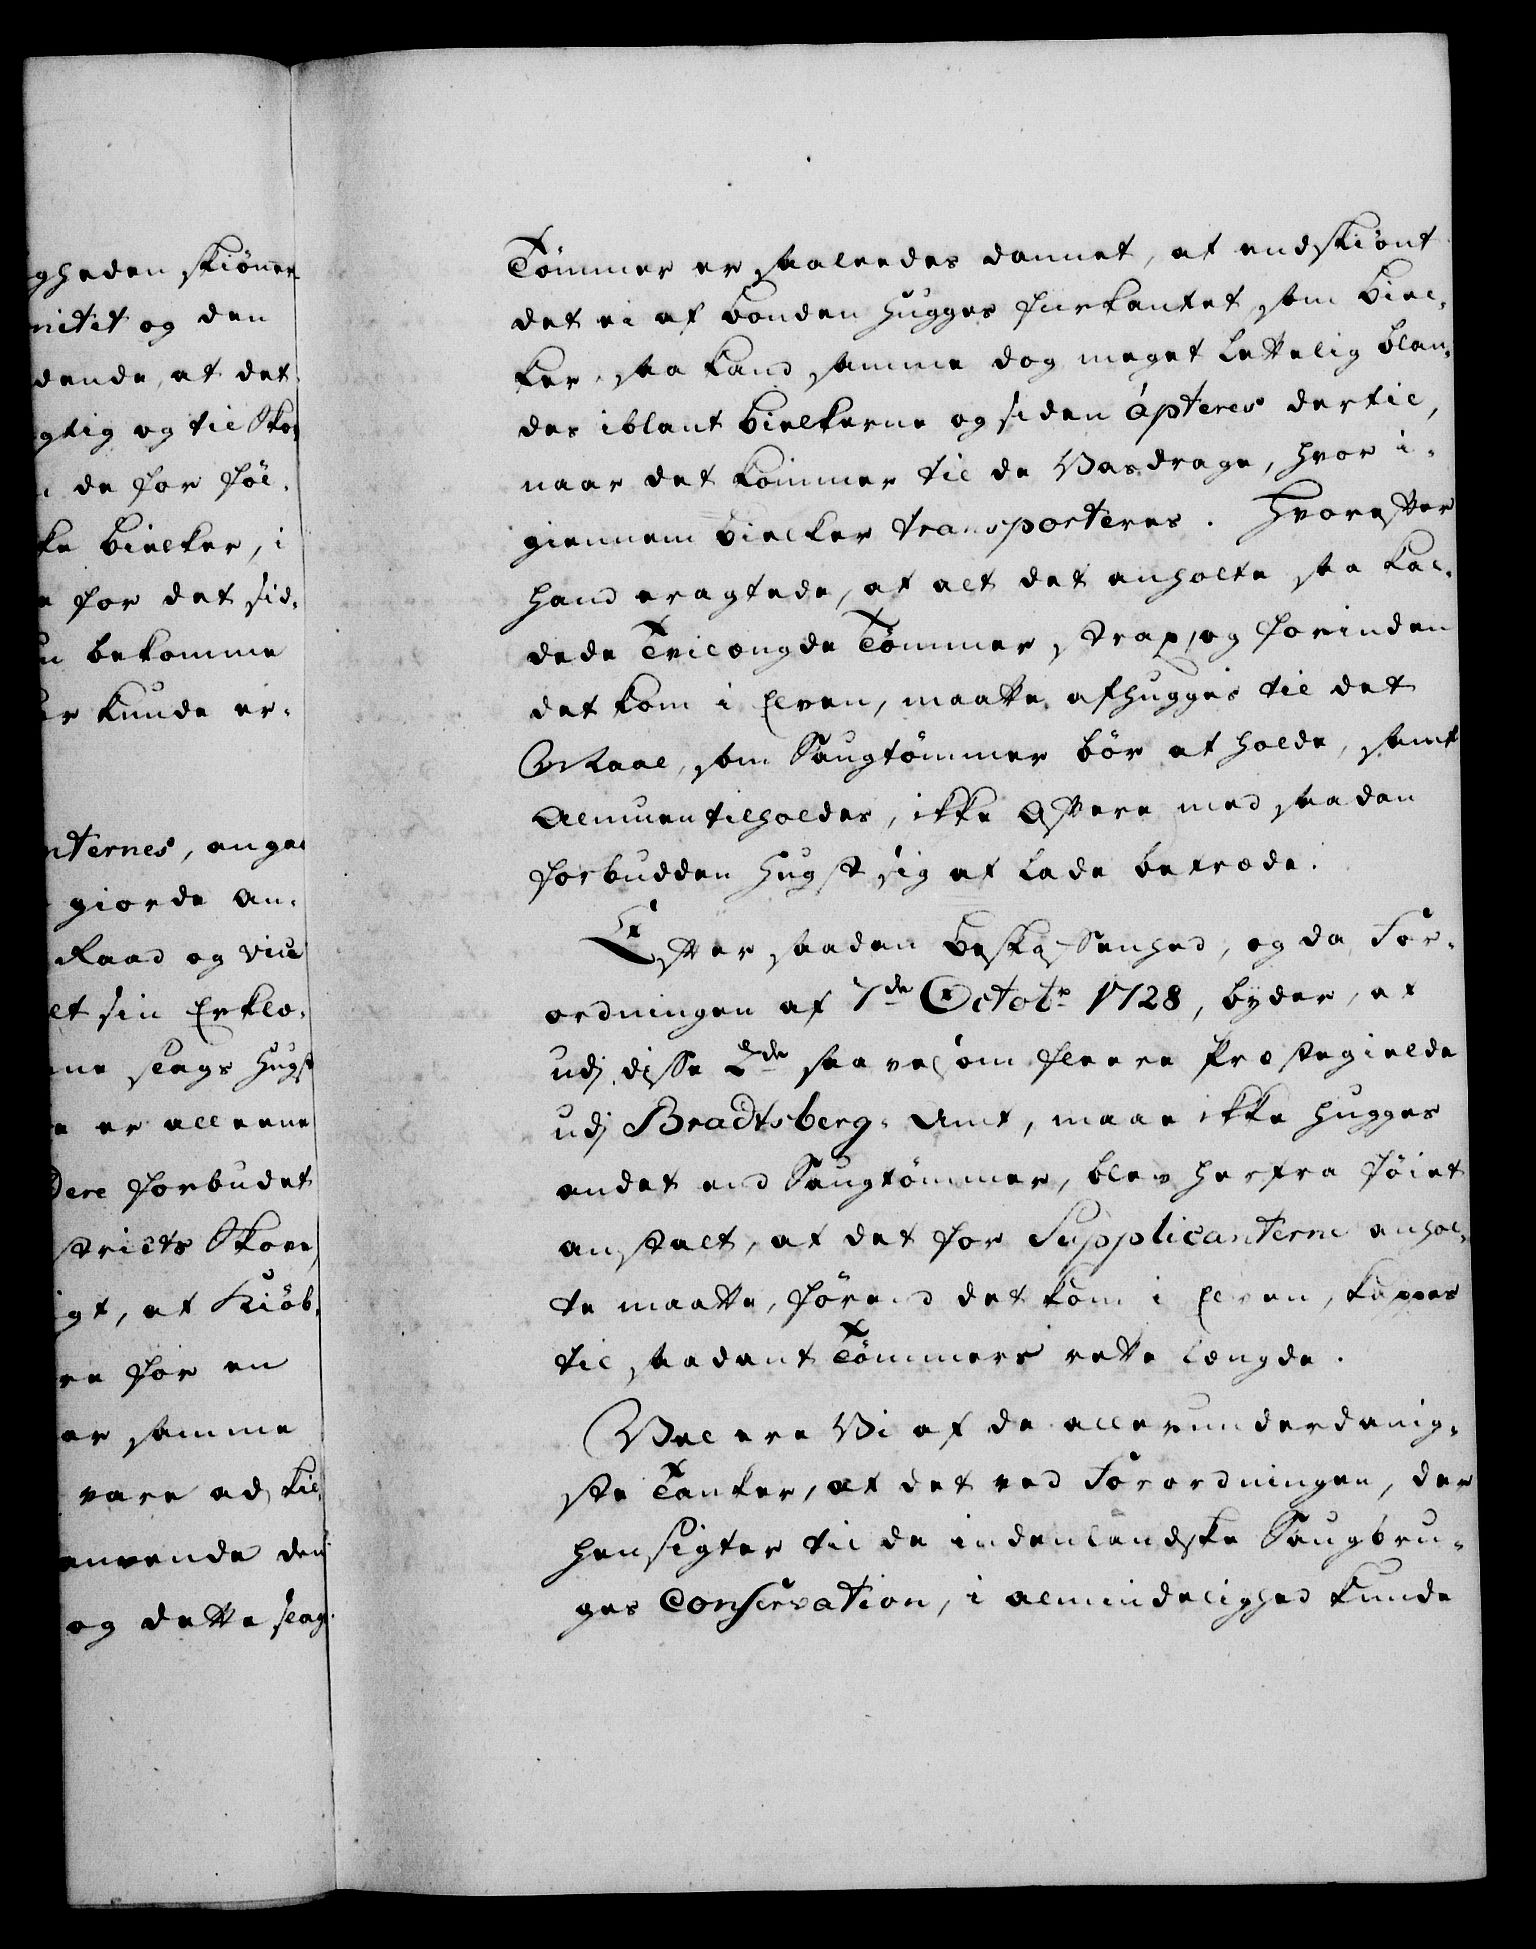 gheden skiönner
nitet og den
dende, at det
gtig og til Sko¬
de for föl¬
ke Bielker, i
for det sid¬
bekomme
er kunde er¬
nternes, angaa
giorde An¬
Raad og viid
lt sin Erklæ¬
ne slags Hugst
er alleene
dere forbudet
stricts Skove
gt, at Kiöb¬
re for en
er samme
vare ad, til
anvende den
og dette slag
Tömmer er saaleedes dannet, at endskiönt
det ei af Bonden hugges fiirkantet som Biel¬
ker, saa kand samme dog meget lettelig blan¬
des iblant Bielkerne og siden apteres dertil,
naar det kommer til de Vasdrage, hvor i¬
giennem Bielker transporteres. Hvorefter
hand eragtede, at alt det anholte saa kal¬
dede Tvilængde Tömmer, strax, og forinden
det kom i Elven, maatte afhugges til det
Maal, som Saugtömmer bör at holde, samt
Almuen tilholdes, ikke oftere med saadan
forbudden Hugst sig at lade betræde.
Efter saadan Beskaffenhed, og da For¬
ordningen af 7de Octobr 1728, byder, at
udj disse 2de saavelsom fleere Præstegielde
udj Bradtsberg-Amt, maae ikke hugges
andet end Saugtömmer, blev herfra föiet
anstalt, at det for Supplicanterne anhol¬
te maatte, förend det kom i Elven, kappes
til saadant Tömmers rette Længde.
Vel ere Vi af de allerunderdanig¬
ste Tanker, at det ved Forordningen, der
hensigter til de indenlandske Saugbru¬
ges Conservation, i almindelighed kunde